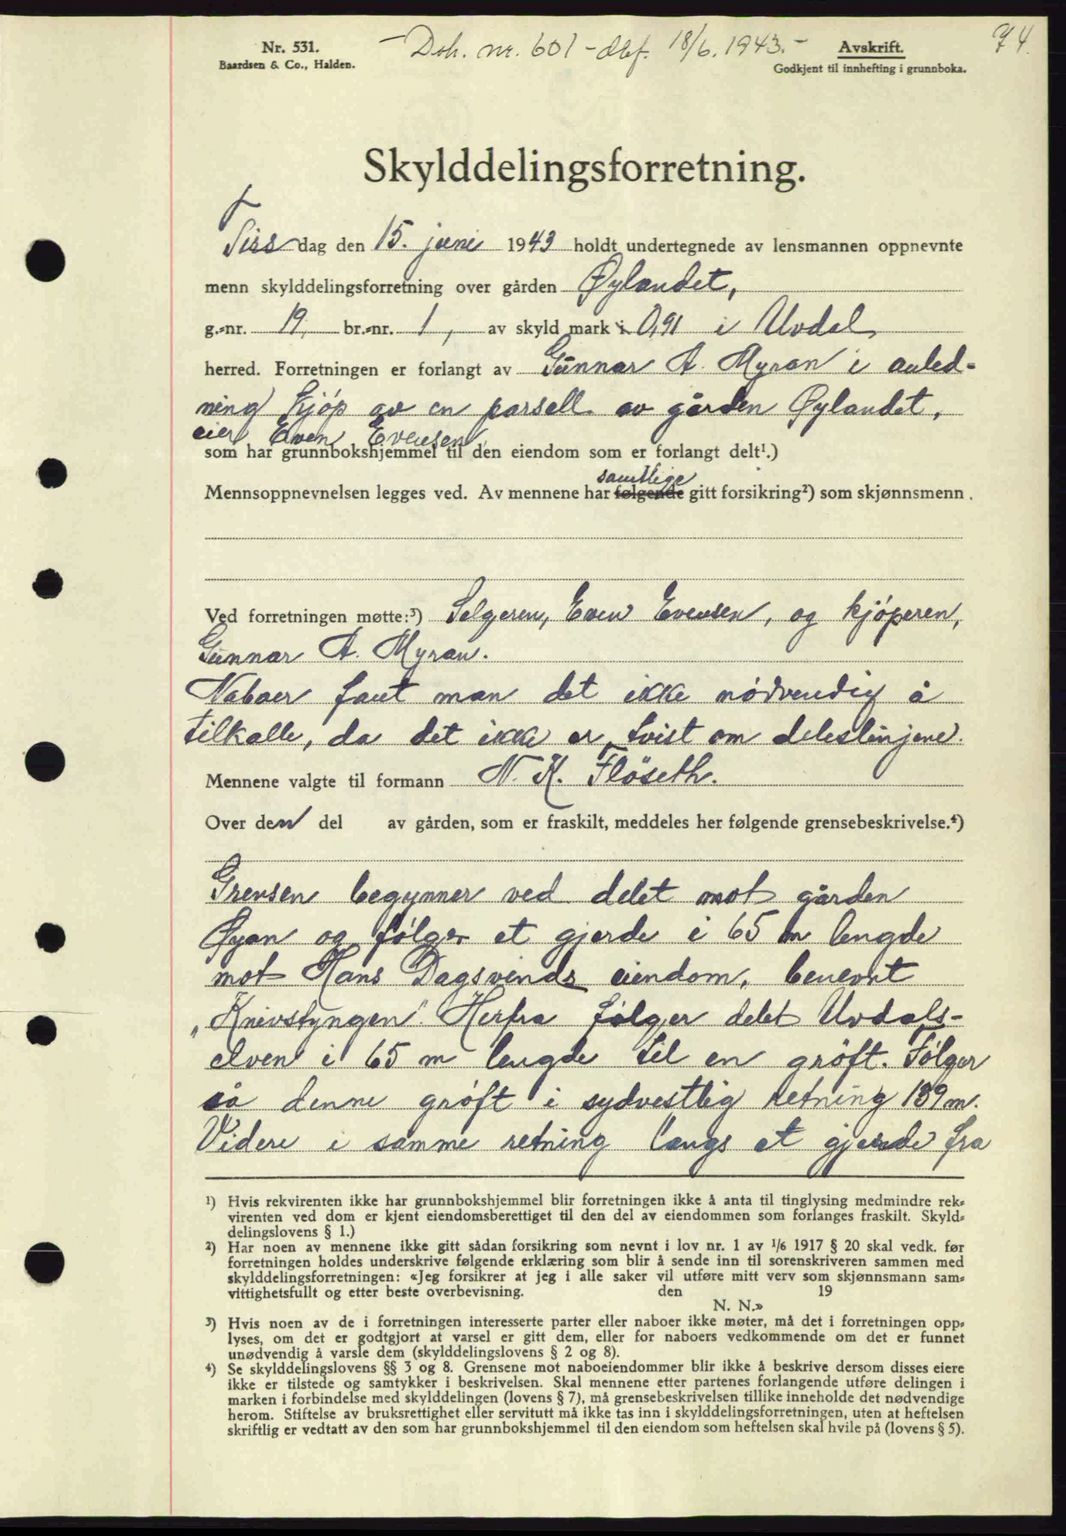 Nr. 531.
Baardsen & Co., Halden.
- Dok. nr. 601 - dbf. 18/6. 1943. -
Avskrift.
Godkjent til innhefting i grunnboka.
74.
Skylddelingsforretning.
Tirsdag den 15. juni 1943 holdt undertegnede av lensmannen oppnevnte
menn skylddelingsforretning over gården Øylandet,
g.-nr. 19, br.-nr. 1, av skyld mark 0,91 i Uvdal
herred. Forretningen er forlangt av Gunnar A. Myran i anled-
ning kjøp av en parsell av gården Øylandet,
eier Even Evensen
som har grunnbokshjemmel til den eiendom som er forlangt delt¹.)
samtlige
Mennsoppnevnelsen legges ved. Av mennene har følgende gitt forsikring²) som skjønnsmenn.
Ved forretningen møtte:³) Selgeren, Even Evensen, og kjøperen,
Gunnar A. Myran.
Naboer fant man det ikke nødvendig å
tilkalle, da det ikke er tvist om deleslinjene.
Mennene valgte til formann N. K. Fløseth.
Over den del av gården, som er fraskilt, meddeles her følgende grensebeskrivelse.⁴)
Grensen begynner ved delet mot gården
Øyan og følger et gjerde i 65 m lengde
mot Hans Dagsvends eiendom, benevnt
„Knivstyngen". Herfra følger delet Uvdals-
elven i 65 m lengde til en grøft. Følger
så denne grøft i sydvestlig retning 139 m.
Videre i samme retning langs et gjerde fra
¹) Hvis rekvirenten ikke har grunnbokshjemmel blir forretningen ikke å anta til tinglysing medmindre rek-
virenten ved dom er kjent eiendomsberettiget til den del av eiendommen som forlanges fraskilt. Skyld-
delingslovens § 1.)
²) Har noen av mennene ikke gitt sådan forsikring som nevnt i lov nr. 1 av 1/6 1917 § 20 skal vedk. før
forretningen holdes underskrive følgende erklæring som blir å sende inn til sorenskriveren sammen med
skylddelingsforretningen: «Jeg forsikrer at jeg i alle saker vil utføre mitt verv som skjønnsmann sam-
vittighetsfullt og etter beste overbevisning. den 19
N. N.»
³) Hvis noen av de i forretningen interesserte parter eller naboer ikke møter, må det i forretningen opp-
lyses, om det er godtgjort at varsel er gitt dem, eller for naboers vedkommende om det er funnet
unødvendig å varsle dem (skylddelingslovens § 2 og 8).
⁴) Se skylddelingslovens §§ 3 og 8. Grensene mot naboeiendommer blir ikke å beskrive dersom disses eiere
ikke er tilstede og samtykker i beskrivelsen. Skal mennene etter partenes forlangende utføre delingen i
marken i forbindelse med skylddelingen (lovens § 7), må grensebeskrivelsen tillike inneholde det nødvendige
herom. Stiftelse av bruksrettighet eller servitutt må ikke tas inn i skylddelingsforretningen, uten at heftelsen
skriftlig er vedtatt av den som har grunnbokshjemmel til den eiendom som heftelsen skal hvile på (lovens § 5).